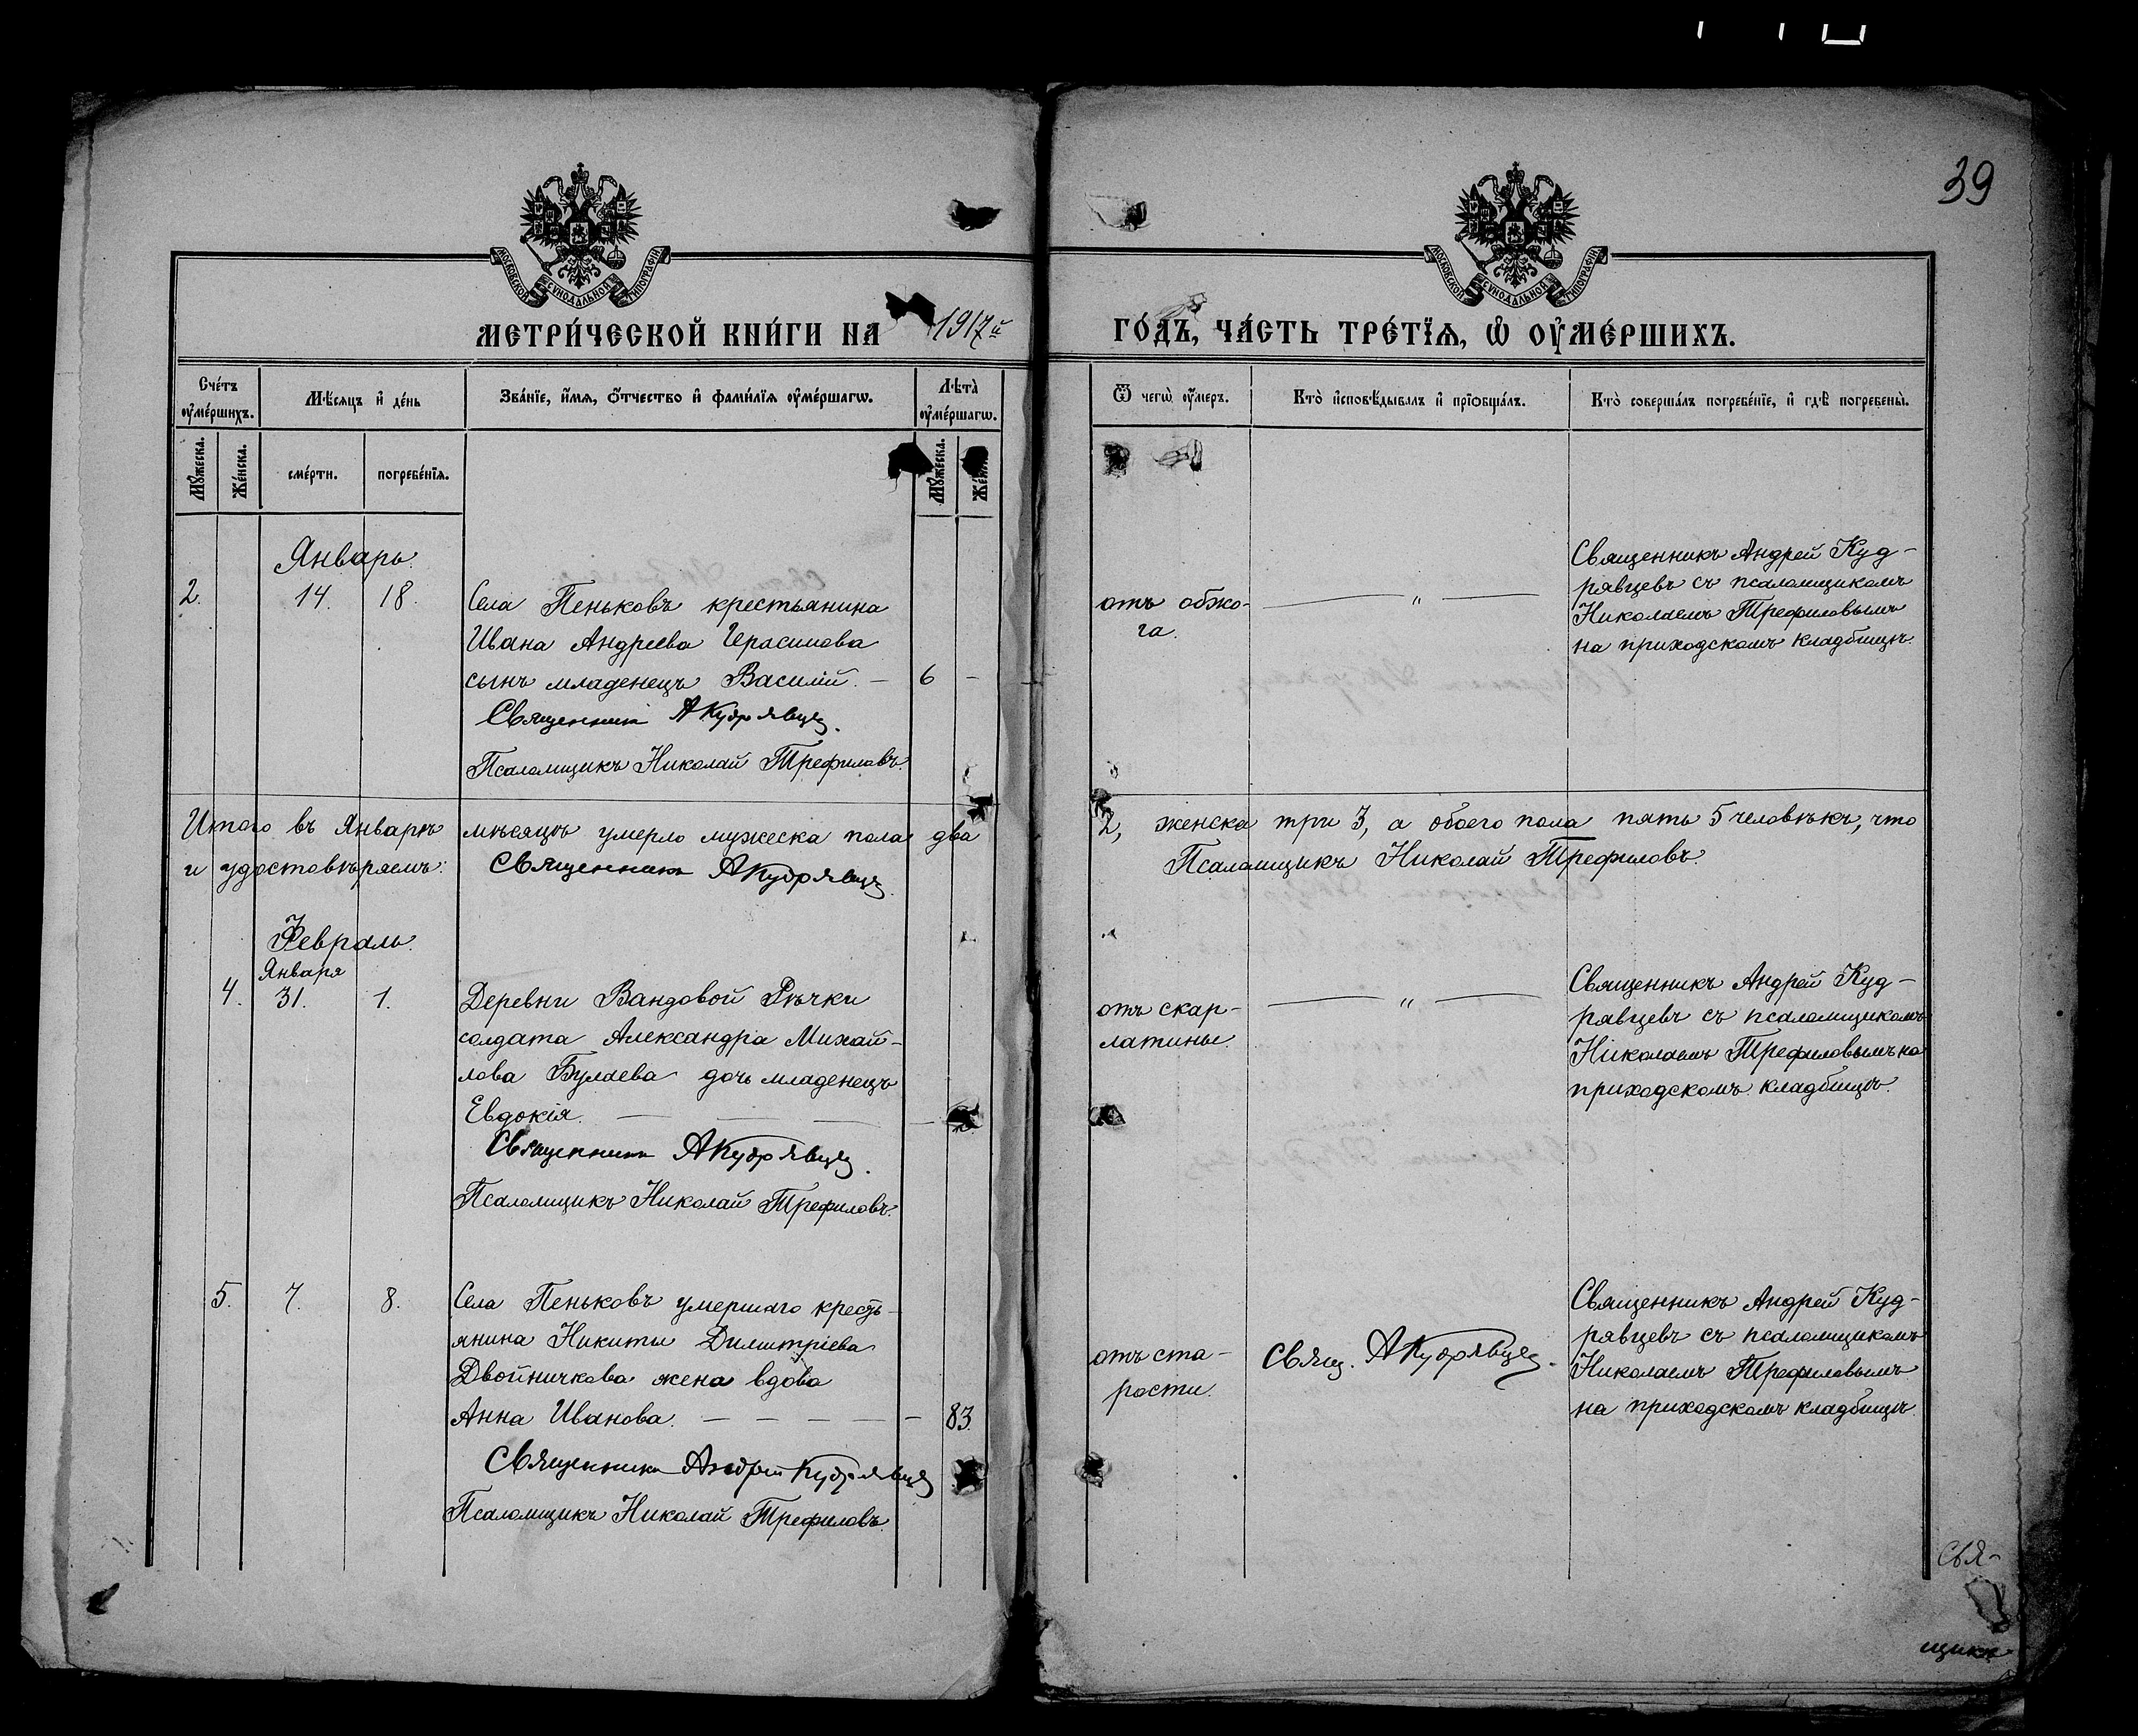 39
МОСКОВСКОЙ СѴНОДАЛЬНОЙ ТИПОГРАФІИ
МОСКОВСКОЙ СѴНОДАЛЬНОЙ ТИПОГРАФІИ
МЕТРИ́ЧЕСКОЙ КНИ́ГИ НА 1917й ГО́ДЪ, ЧА́СТЬ ТРЕ́ТЇѦ, Ѡ҆ ОУ҆МЕ́РШИХЪ.
Сче́тъ оу҆ме́ршихъ.
Мѣ́сѧцъ и҆ де́нь
Зва́нїе, и҆́мѧ, ѻ҆́тчество и҆ фами́лїѧ оу҆ме́ршагѡ.
Лѣ́та̀ оу҆ме́ршагѡ.
Ѿ чегѡ̀ оу҆́меръ.
Кто̀ и҆сповѣ́дывалъ и҆ прїѡбща́лъ.
Кто̀ соверша́лъ погребе́нїе, и҆ гдѣ̀ погребены̀.
Мꙋ́жеска.
Же́нска.
сме́рти.
погребе́нїѧ.
Мꙋ́жеска.
Январь.
2. 14. 18. Села Пеньковъ крестьянина
Ивана Андреева Герасимова
сынъ младенецъ Василій. — 6 —
Священникъ А Кудрявцев.
Псаломщикъ Николай Трефиловъ.
отъ обжо-
га.
— „ —
Священникъ Андрей Куд-
рявцевъ съ псаломщикомъ
Николаемъ Трефиловымъ
на приходскомъ кладбищѣ.
Итого въ Январѣ мѣсяцѣ умерло мужеска пола два 2, женска три 3, а обоего пола пять 5 человѣкъ, что
и удостовѣряемъ: Священникъ А Кудрявцев. Псаломщикъ Николай Трефиловъ.
Февраль.
Января
4. 31. 1. Деревни Вандовой Рѣчки
солдата Александра Михай-
лова Булаева дочь младенецъ
Евдокія. — — —
Священникъ А Кудрявцев.
Псаломщикъ Николай Трефиловъ.
отъ скар-
латины.
— „ —
Священникъ Андрей Куд-
рявцевъ съ псаломщикомъ
Николаемъ Трефиловымъ на
приходскомъ кладбищѣ.
5. 7. 8. Села Пеньковъ умершаго кресть-
янина Никиты Димитріева
Двойничкова жена вдова
Анна Иванова. — — — — — — 83.
Священникъ Андрей Кудрявцев
Псаломщикъ Николай Трефиловъ.
отъ ста-
рости.
Свящ. А Кудрявцев.
Священникъ Андрей Куд-
рявцевъ съ псаломщикомъ
Николаемъ Трефиловымъ
на приходскомъ кладбищѣ.
Свя-
щикъ